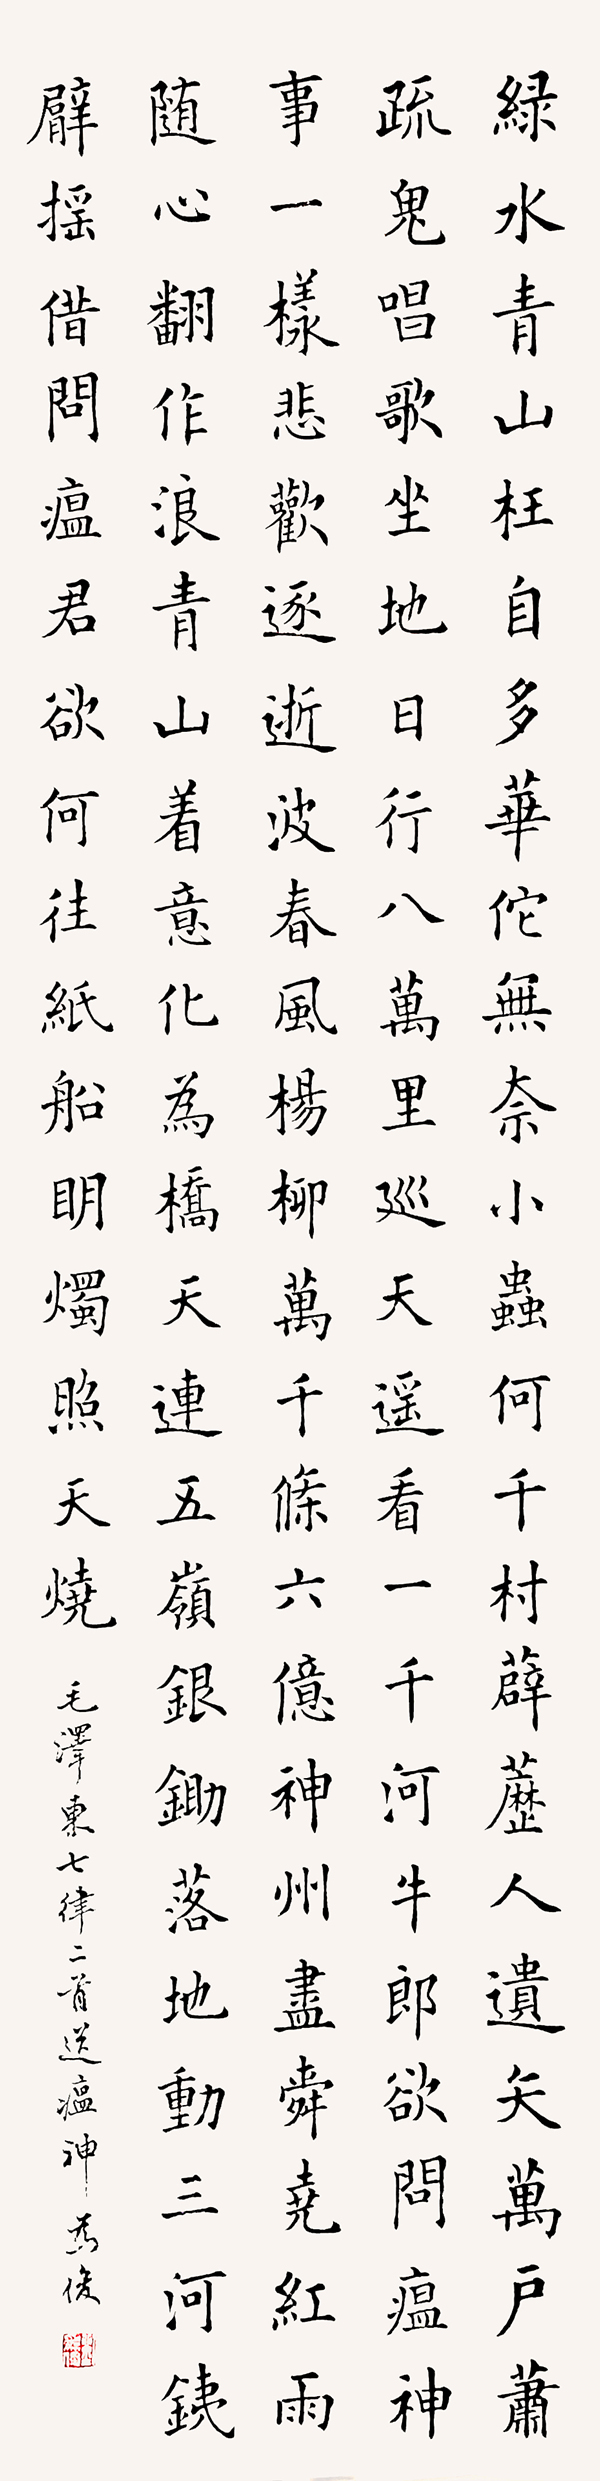 緑水青山枉自多華佗無奈小蟲何千村薜藶人遺矢萬户蕭
疏鬼唱歌坐地日行八萬里廵天遥看一千河牛郎欲問瘟神
事一樣悲歡逐逝波春風楊柳萬千條六億神州盡舜堯紅雨
随心翻作浪青山着意化為橋天連五嶺銀鋤落地動三河銕
臂摇借問瘟君欲何往紙船明燭照天燒
毛澤東七律二首送瘟神 俊